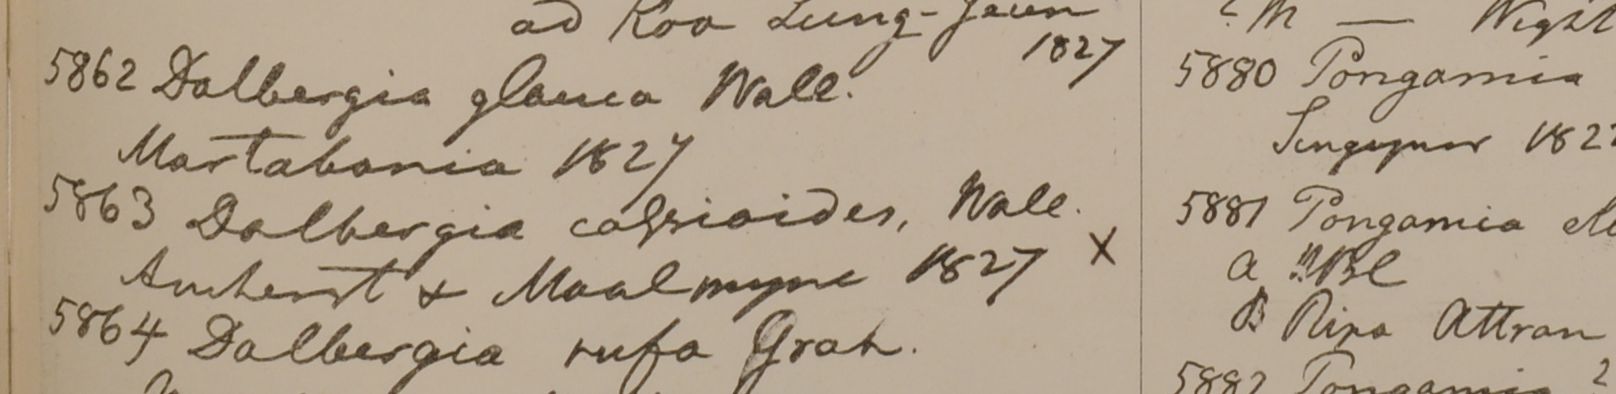 ad Koa Lung-Jeun
1827
5862 Dalbergia glauca Wall.
Martabania 1827
5863 Dalbergia cassioides, Wall.
Amherst & Moalmyne 1827 X
5864 Dalbergia rufa Grah.
? M — Wight
5880 Pongamia
Singapur 182
5881 Pongamia
a HBC
B Ripa Attran
5882 Pongamia ?